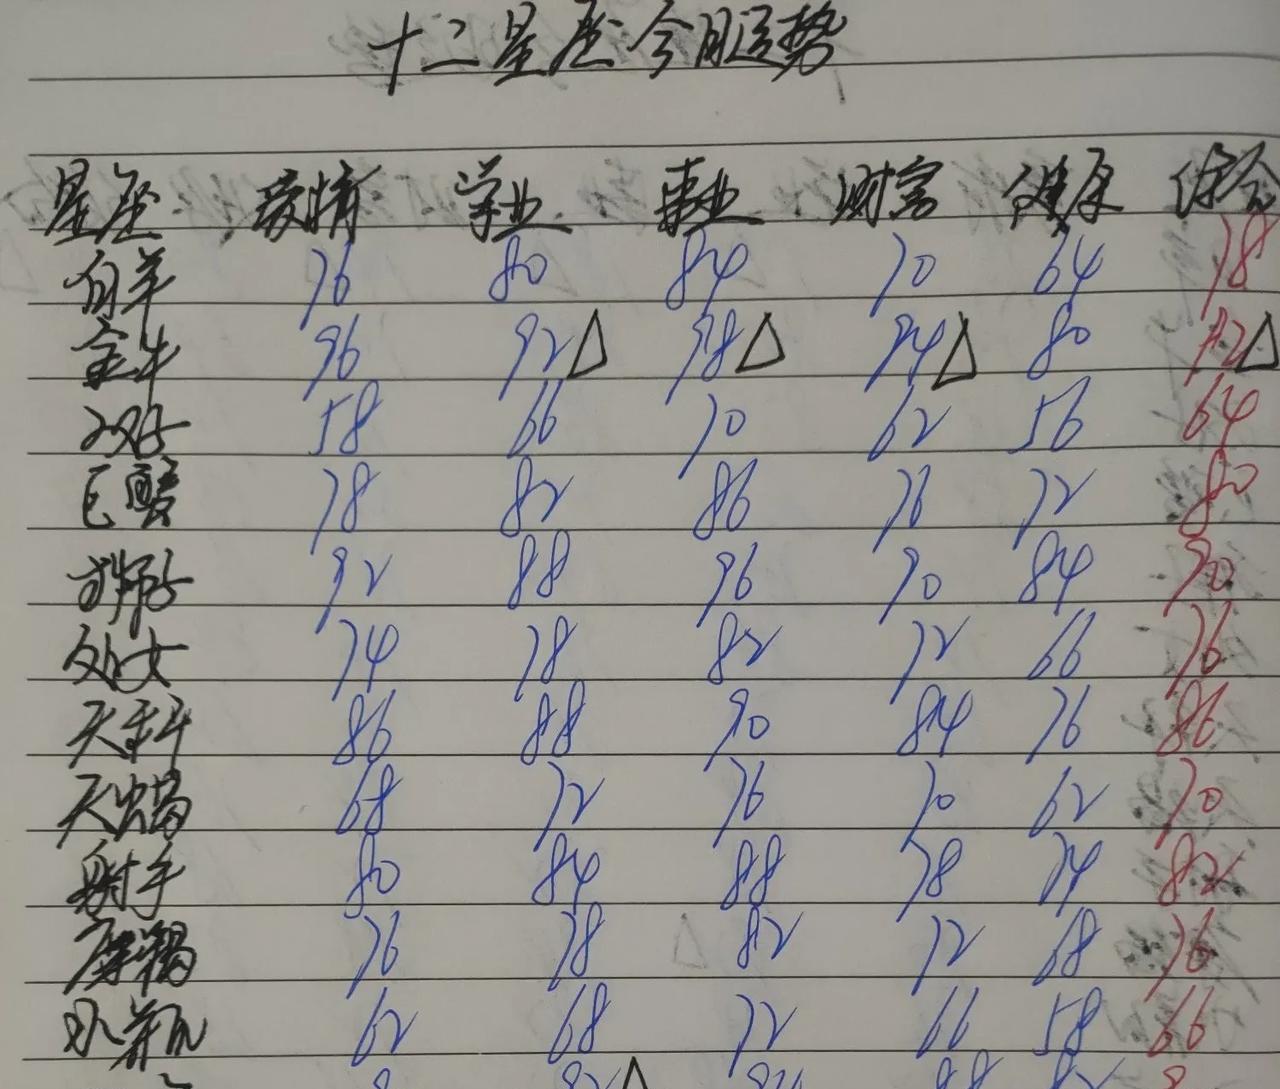 十二星座今日运势
星座 爱情 学业 事业 财富 健康 综合
白羊 76 80 84 70 64 78
金牛 96 92△ 98△ 94△ 80 92△
双子 58 66 70 62 56 64
巨蟹 78 82 86 76 72 80
狮子 92 88 96 90 84 90
处女 74 78 82 72 66 76
天秤 86 88 90 84 76 86
天蝎 68 72 76 70 62 70
射手 80 84 88 78 74 82
摩羯 76 78 82 72 68 76
水瓶 62 68 72 66 58 66